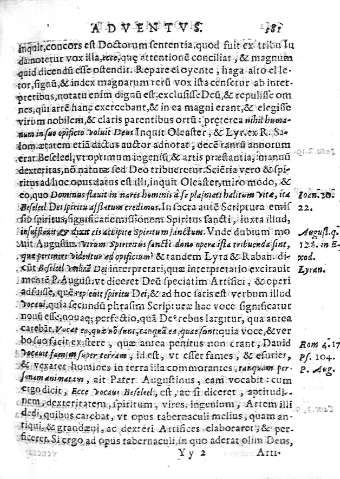 ADVENTVS. 581
Inquit, concors est Doctorum sententia, quod fuit ex tribu Iu
da notetur vox illa, que attentionē conciliat, & magnum
quid dicendū esse ostendit. Repare el oyente, haga alto el le
tor, signū, & index magnarum rerū vox ista censetur ab inter
pretibus, notatu enim dignū est, exclusisse Deū, & repulisse om
nes, qui artē hanc exercebant, & in ea magni erant, & elegisse
virum nobilem, & claris parentibus ortū: præterea nihil huma-
num in suo opificio voluit Deus Inquit Oleaster, & Lyr. ex R. Sa-
lom. ætatem etiā dictus auctor adnotat, decē tantū annorum
erat Beseleel, vt optimum ingeniū, & artis præstantia, manuū
dexteritas, nō naturæ sed Deo tribueretur. Sciētia vero & spi-
ritus ad hoc opus datus est illi, inquit Oleaster, miro modo, &
eo, quo Dominus flauit in nares hominis
Beseleel Dei spiritu afflatum credimus. In sacra autē Scriptura emis
sio spiritus, significat emissionem Spiritus sancti, iuxta illud,
insufflauit & dixit eis accipite Spiritum sanctum. Vnde dubium mo
uit Augustin. Vtrum Spiritus sancti dono opera ista tribuenda sint,
quæ pertinere videntur ad opificium & tandem Lyra & Raban. di-
cūt Beseleel umbrā Dei interpretari, quæ interpretatio excitauit
mentē P. Augus. vt diceret Deū speciatim Artifici, & operi
adfuisse, quē repleuit spiritu Dei, & ad hoc satis est verbum illud
vocaui, quia secundū phrasim Scripturæ hac voce significatur
nouū esse, nouaq; perfectio, quā Deº rebus largitur, qua antea
carebāt. Vocat ea, quæ nō sunt, tanquā ea quæ sunt quia voce, & ver
bo suo facit existere, quæ antea penitus non erant, Dauid
vocauit famem super terram, id est, vt esset fames, & esuries,
& vexaret homines in terra illa commorantes, tanquam per-
sonam animatam, ait Pater Augustinus, eam vocabit: cum
ergo dicit, Ecce vocaui Beseleel, est, ac si diceret, aptitudi-
nem, dexteritatem, spiritum, vires, ingenium, Artem illi
dedi, quibus carebat, vt opus tabernaculi melius, quam an-
tiqui, & grandæui, ac dexteri Artifices elaboraret, & per-
ficeret. Si ergo ad opus tabernaculi, in quo aderat olim Deus,
Yy 2 Arti-
Ioen. 20.
22.
August. q.
128. in E-
xod.
Lyran.
Rom 4. 17
Ps. 104.
P. Aug.